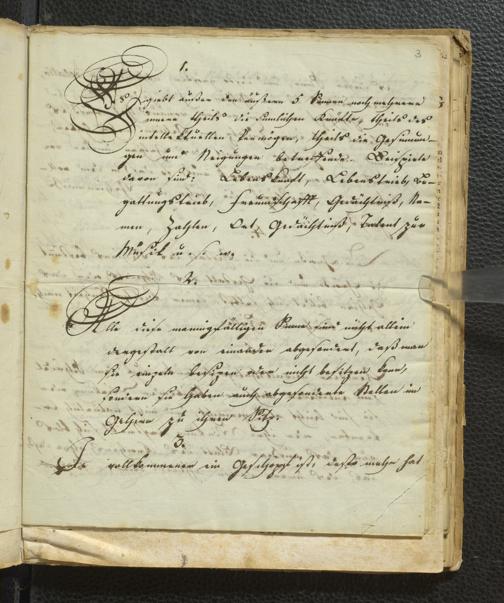 3
1.
Es giebt außer den äußern 5 Sinnen noch mehrere
innere theils die sinnlichen Kräfte, theils das
intellektuellen Vermögen, theils die Gesinnun-
gen und Neigungen betreffende. Beispiele
davon sind: Lebenskraft, Lebenstrieb, Be-
gattungstrieb, Freundschafft, Gedächtniß, Na-
men, Zahlen, Ort Gedächtniß, Talent zur
Musik u. s. w.
2.
Alle diese mannigfältigen Sinne sind nicht allein
dergestalt von einander abgesondert, daß man
sie einzeln besitzen oder nicht besitzen kann,
sondern sie haben auch abgesonderte Stellen im
Gehirn zu ihrem Sitz.
3.
Je vollkommener ein Geschöpf ist, desto mehr hat